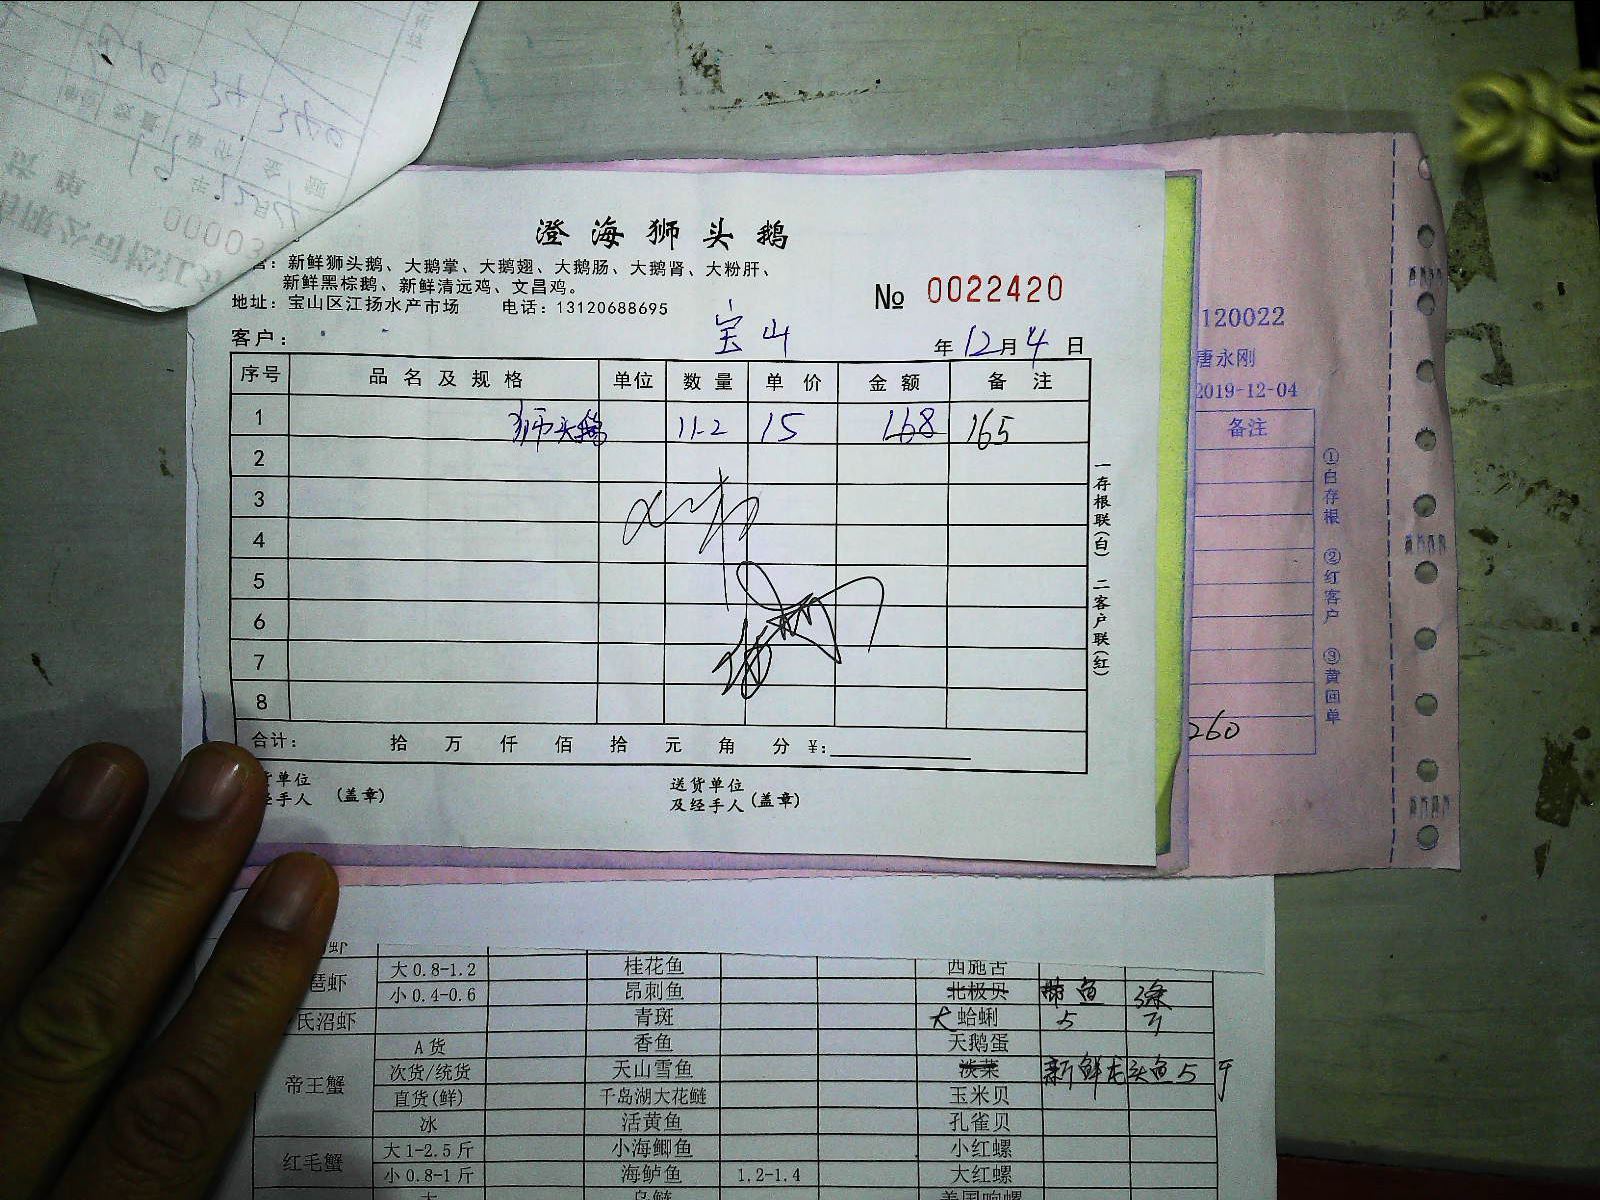 澄海狮头鹅
营：新鲜狮头鹅、大鹅掌、大鹅翅、大鹅肠、大鹅肾、大粉肝、
新鲜黑棕鹅、新鲜清远鸡、文昌鸡。
地址：宝山区江扬水产市场 电话：13120688695
№ 0022420
客户： 宝山 年 12 月 4 日
序号 品名及规格 单位 数量 单价 金额 备注
1 狮头鹅 11.2 15 168 165
2
3
4
5
6
7
8
合计： 拾 万 仟 佰 拾 元 角 分 ¥:
货单位
经手人 (盖章)
送货单位
及经手人 (盖章)
一存根联(白) 二客户联(红)
120022
唐永刚
2019-12-04
备注
①白存根 ②红客户 ③黄回单
260
琶虾 大0.8-1.2 桂花鱼 西施舌
小0.4-0.6 昂刺鱼 北极贝
氏沼虾 青斑 大蛤蜊 5
帝王蟹 A货 香鱼 天鹅蛋
次货/统货 天山雪鱼 淡菜 新鲜龙头鱼5斤
直货(鲜) 千岛湖大花鲢 玉米贝
冰 活黄鱼 孔雀贝
红毛蟹 大1-2.5斤 小海鲫鱼 小红螺
小0.8-1斤 海鲈鱼 1.2-1.4 大红螺